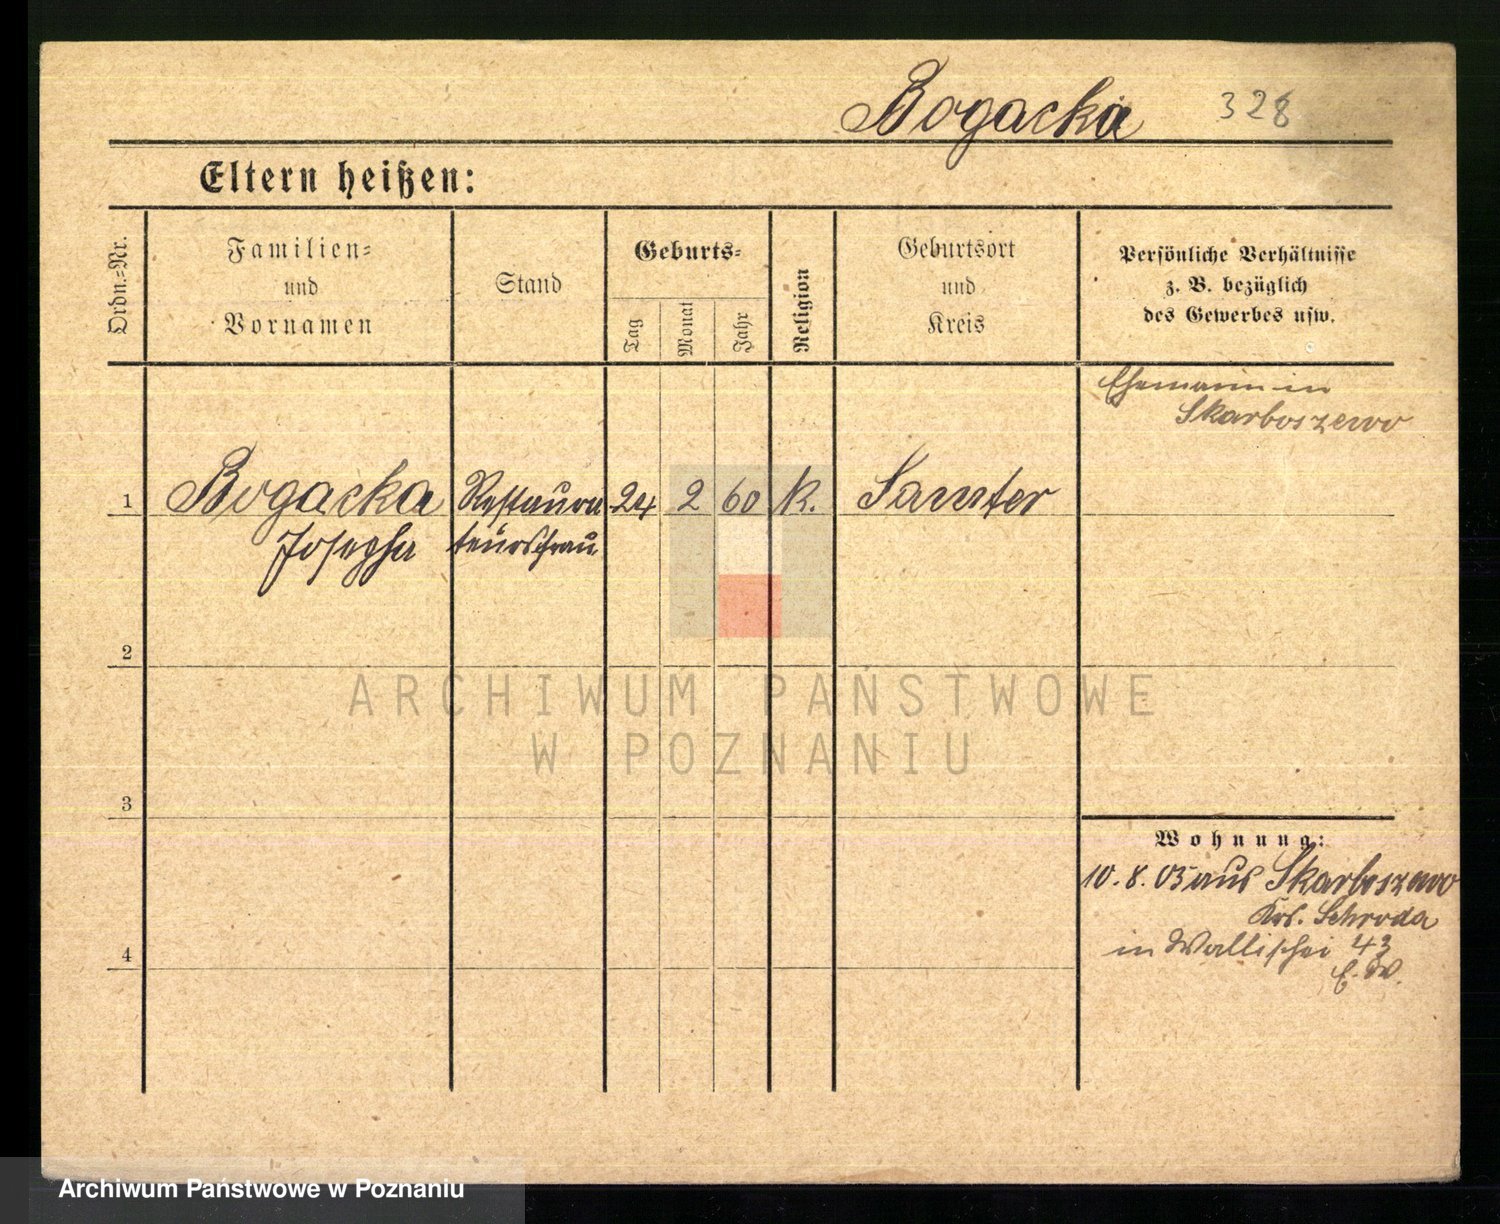 Bogacka 328
Eltern heißen:
Ordn.-Nr.
Familien-
und
Vornamen
Stand
Geburts-
Tag
Monat
Jahr
Religion
Geburtsort
und
Kreis
Persönliche Verhältnisse
z. B. bezüglich
des Gewerbes usw.
Ehemann in
Skarboszewo
1 Bogacka Restaura 24 2 60 K. Samter
Josepha teursfrau
2
3
ARCHIWUM PAŃSTWOWE
W POZNANIU
Wohnung:
10. 8. 05 aus Skarboszewo
Krs. Schroda
in Wallischei 43
E. W.
4
Archiwum Państwowe w Poznaniu